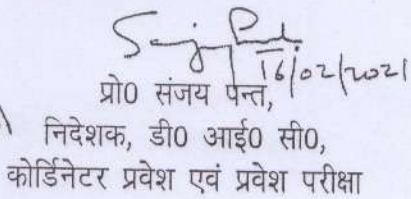 16/02/2021
प्रो0 संजय पन्त,
निदेशक, डी0 आई0 सी0,
कोर्डिनेटर प्रवेश एवं प्रवेश परीक्षा